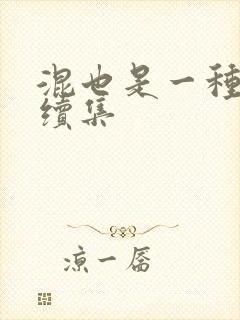 混也是一種
續集
凉一孱